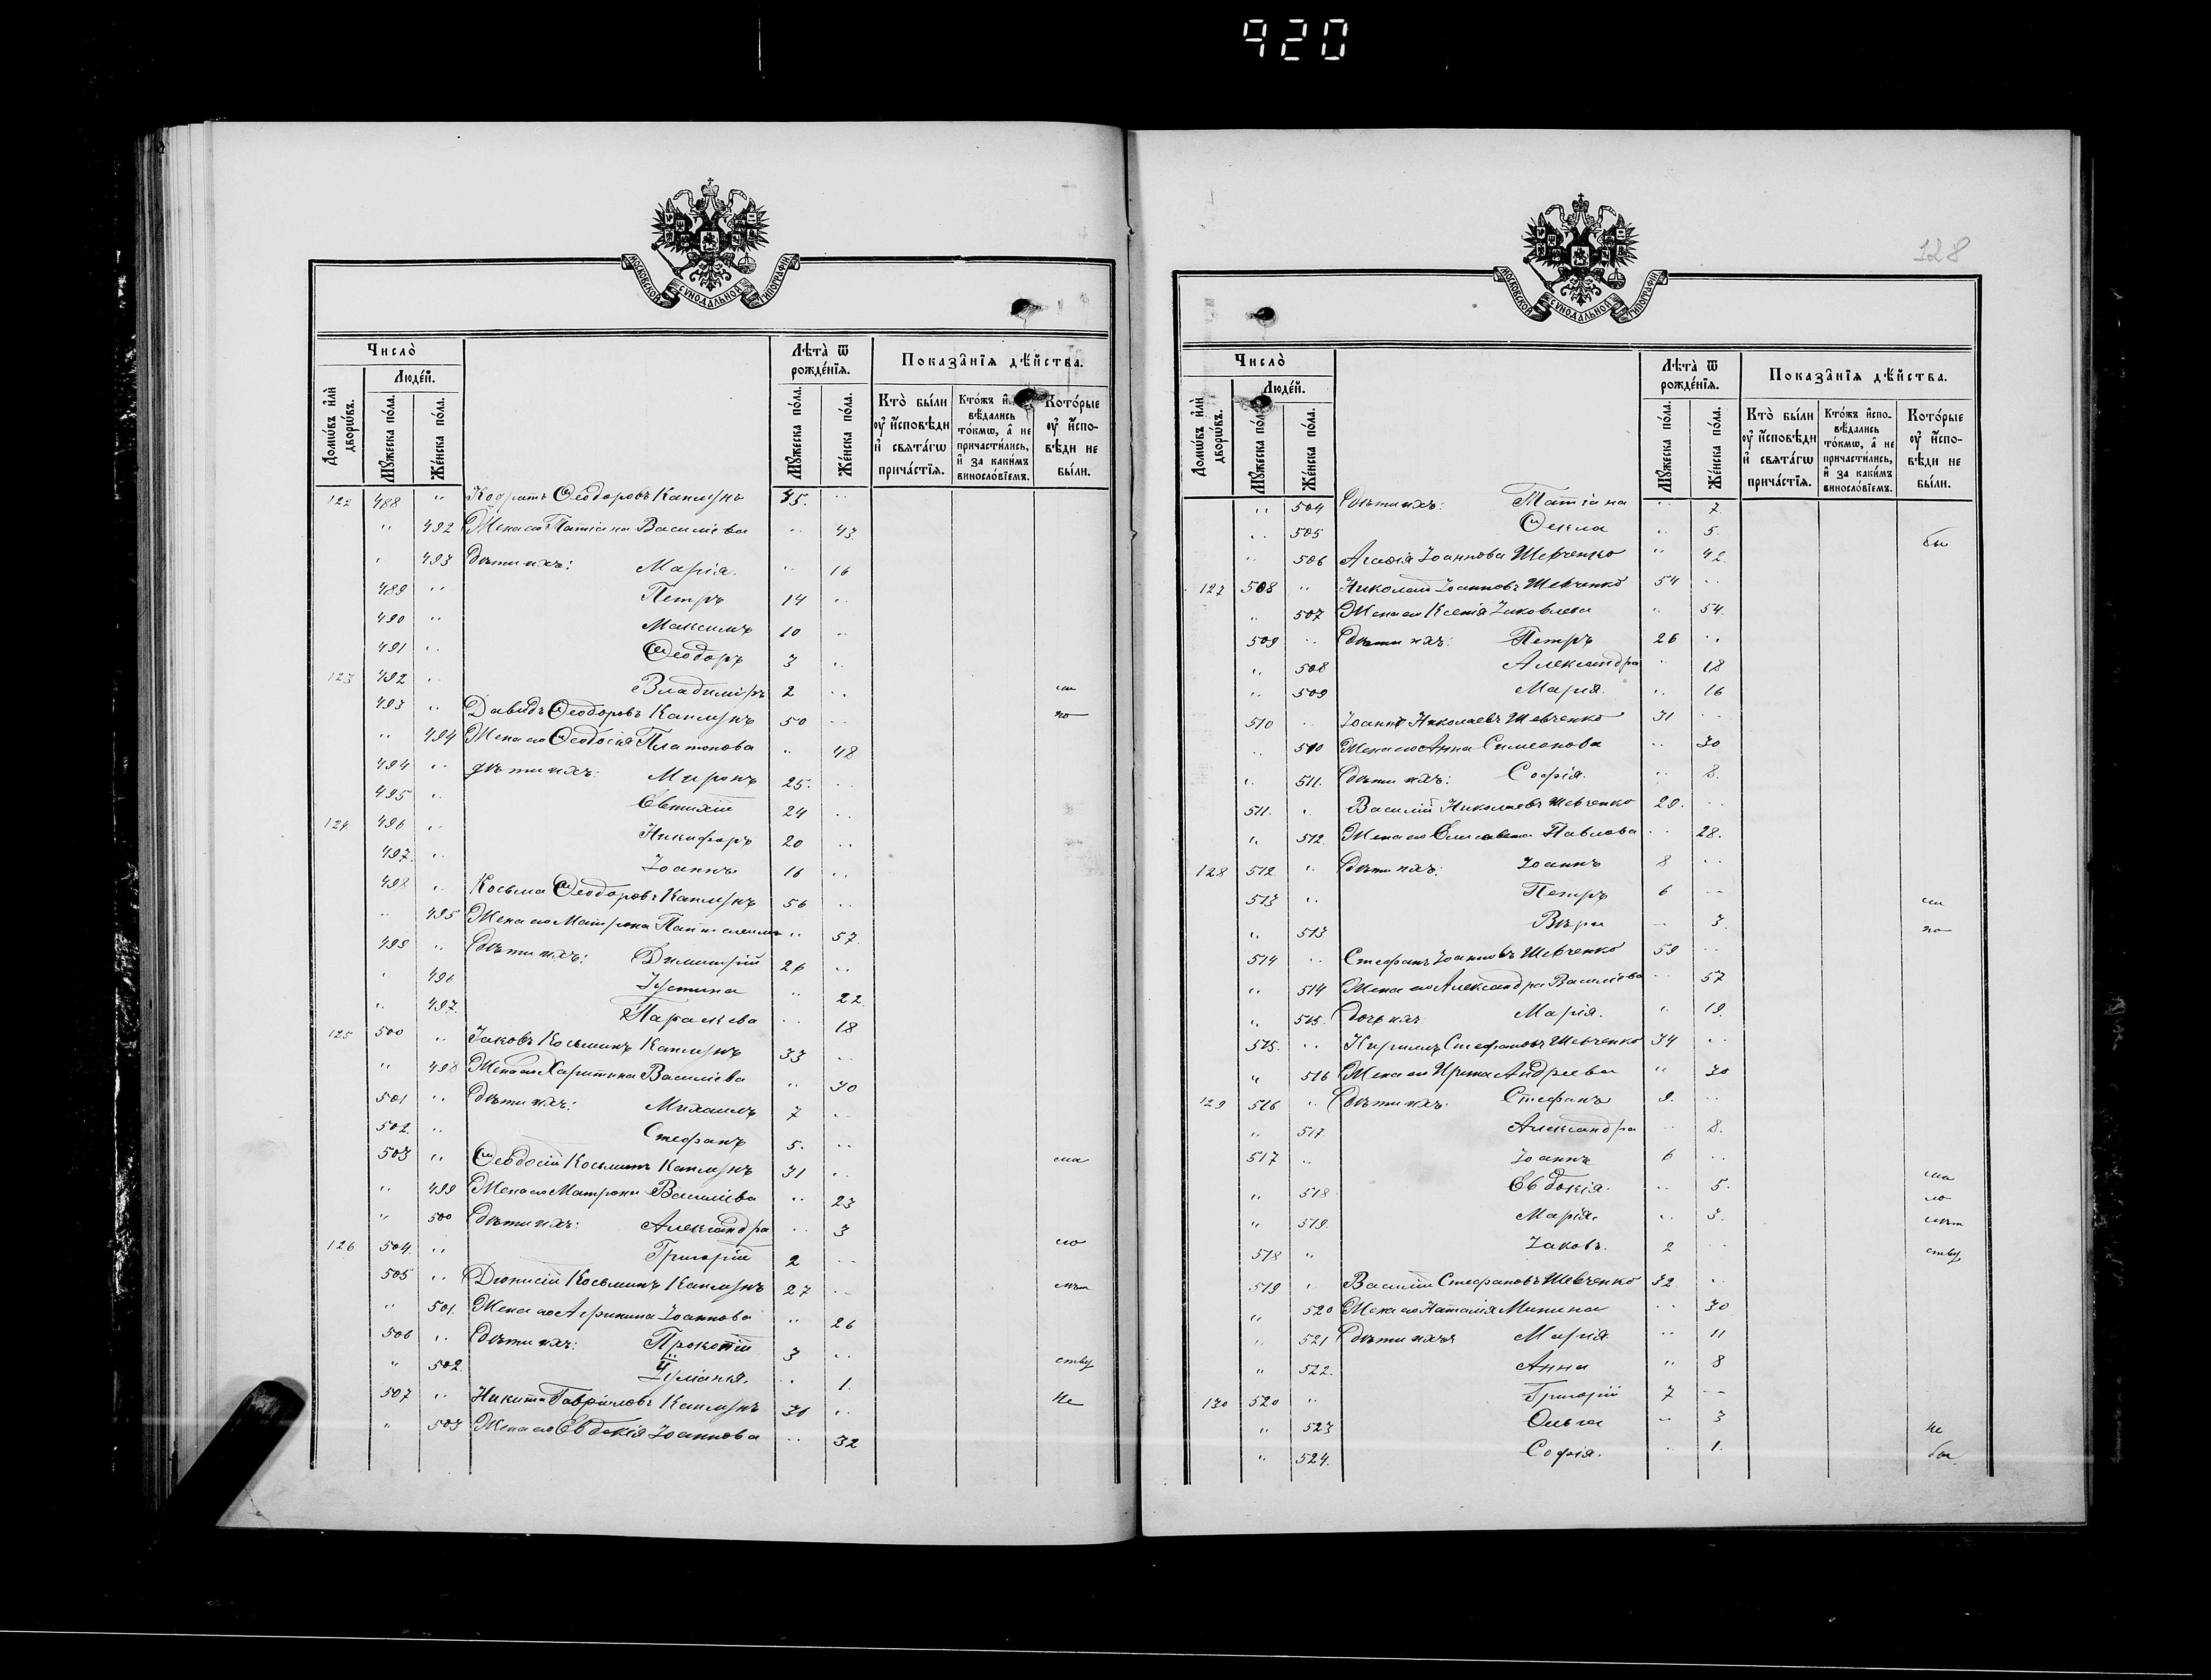 920
МОСКОВСКОЙ СѴНОДАЛЬНОЙ ТИПОГРАФІИ
Число̀
Людéй.
Лѣтà ѿ рождéнїѧ.
Показа̂нїѧ дѣ́йства.
Домѡ́въ и҆лѝ дворѡ́въ.
Мꙋ́жеска по́ла.
Же́нска по́ла.
Мꙋ́жеска по́ла.
Же́нска по́ла.
Ктò бы́ли ᲂу҆ и҆сповѣди и҆ свѧта́гѡ прича́стїѧ.
вѣ́дались то́кмѡ, а҆ не причасти́лись, и҆ за каки́мъ винослóвїемъ.
Кото́рые ᲂу҆ и҆спо- вѣди не бы́ли.
122 488 " Кодратъ Ѳеодоровъ 45. "
" 492 Жена его Татіана Василіева " 43
" 493 Дѣти ихъ: Марія. " 16
489 " Петръ 14 "
490 " Максимъ 10 "
491 " Ѳеодоръ 3 "
123 492 " Владиміръ 2 "
493 " Давидъ Ѳеодоровъ 50 "
" 494 Жена его Ѳеодосія Платонова " 48
494 " Дѣти ихъ: Миронъ 25. "
495 " Евтихій 24 "
124 496 " Никифоръ 20 "
497. " Іоаннъ 16 "
498 " Косьма Ѳеодоровъ 56 "
" 495 Жена его Матрона " 57.
499 " Дѣти ихъ: Димитрій 26 "
" 496 Іустина " 22
" 497. Параскева " 18
125 500 " Іаковъ Косьминъ 33 "
" 498 Жена его Харитина Василіева " 30
501 " Дѣти ихъ: Михаилъ 7 "
502. " Стефанъ 5. "
503 " Ѳеодосій Косьминъ 31 "
" 499 Жена его Матрона Василіева " 23
" 500 Дѣти ихъ: Александра " 3
126 504. " Григорій 2 "
505 " Діонисій Косьминъ 27 "
" 501. Жена его Агрипина Іоаннова " 26
506 " Дѣти ихъ: Прокопій 3 "
" 502. " 1.
507 " Никита Гавріиловъ "
" 503 Жена его Евдокія Іоаннова " 32
по
ма
ло
лѣт
ству
не
128
МОСКОВСКОЙ СѴНОДАЛЬНОЙ ТИПОГРАФІИ
Число̀
Людéй.
Лѣтà ѿ рождéнїѧ.
Показа̂нїѧ дѣ́йства.
Домѡ́въ и҆лѝ дворѡ́въ.
Мꙋ́жеска по́ла.
Же́нска по́ла.
Мꙋ́жеска по́ла.
Же́нска по́ла.
Ктò бы́ли ᲂу҆ и҆сповѣди и҆ свѧта́гѡ прича́стїѧ.
Кто́жъ и҆спо- вѣ́дались то́кмѡ, а҆ не причасти́лись, и҆ за каки́мъ винослóвїемъ.
Кото́рые ᲂу҆ и҆спо- вѣди не бы́ли.
" 504 Дѣти ихъ: Татіана " 7.
" 505 Ѳекла " 5.
" 506 Агаѳія Іоаннова Шевченко " 42.
127 508 " Николай Іоанновъ Шевченко 54 "
" 507 Жена его Ксенія Іаковлева " 54.
509 " Дѣти ихъ: Петръ 26 "
" 508 Александра " 18
" 509 Марія. " 16
510 " Іоаннъ Николаевъ Шевченко 31 "
" 510 Жена его Анна Симеонова " 30
" 511. Дѣти ихъ: Софія. " 8.
511. " Василій Николаевъ Шевченко 29. "
" 512. Жена его Елисавета Павлова " 28.
128 512 " Дѣти ихъ: Іоаннъ 8 "
513 " Петръ 6 "
" 513 Вѣра " 3.
514 " Стефанъ Іоанновъ Шевченко 59 "
" 514 Жена его Александра Василіева " 57
" 515. Дочь ихъ Марія. " 19.
515. " Кириллъ Стефановъ Шевченко 34 "
" 516 Жена его Ирина Андреева " 30
129 516 " Дѣти ихъ: Стефанъ 9. "
" 517. Александра " 8.
517 " Іоаннъ 6 "
" 518 Евдокія. " 5.
" 519. Марія. " 3.
518 " Іаковъ. 2 "
519 " Василій Стефановъ Шевченко 32. "
" 520 Жена его Наталія Минина " 30
" 521 Дѣти ихъ Марія " 11
" 522. Анна " 8
130 520 " Григорій 7 "
" 523 Ольга " 3
" 524. Софія. " 1.
бы
ли
по
ма
ло
лѣт
ству
не
бы